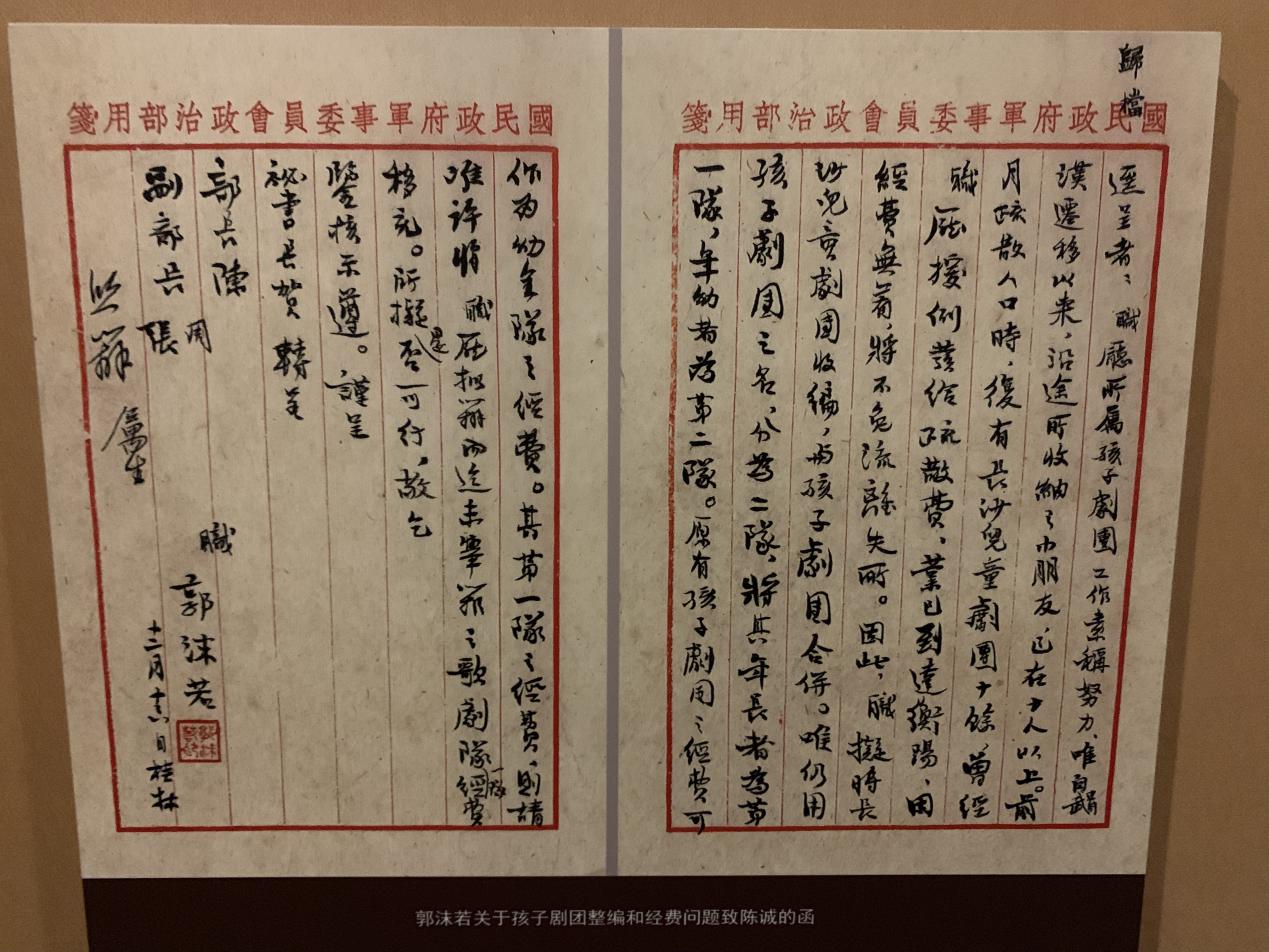 歸檔
國民政府軍事委員會政治部用箋
逕呈者：職廳所屬孩子劇團工作素稱努力，唯自武
漢遷移以来，沿途所收納之小朋友，已在十人以上。前
月疏散人口時，復有長沙兒童劇團十餘，曾經
職廳援例發給疏散費，業已到達衡陽，因
經費無着，將不免流離失所。因此，職擬將長
沙兒童劇團收編，與孩子劇團合併。唯仍用
孩子劇團之名，分為二隊，將其年長者為第
一隊，年幼者為第二隊。原有孩子劇團之經費可
國民政府軍事委員會政治部用箋
作為幼童隊之經費。其第一隊之經費，則請
准許將職廳擬辦而迄未舉辦之歌劇隊一隊經費
移充。所擬是否可行，敬乞
鑒核示遵。謹呈
祕書長賀轉呈
部長陳
副部長張周
職郭沫若
十二月十六日桂林
照辦
郭沫若关于孩子剧团整编和经费问题致陈诚的函